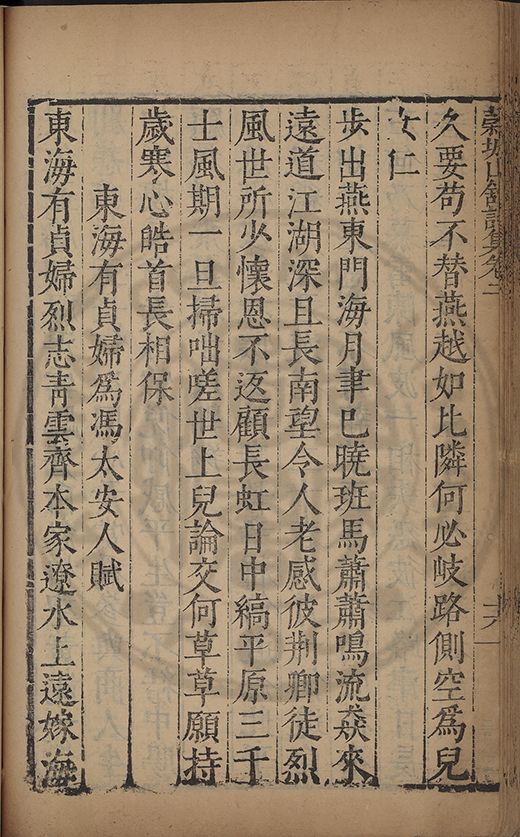 穀城山館詩集卷二
久要苟不替燕越如比隣何必岐路側空爲兒
女仁
步出燕東門海月聿巳曉班馬蕭蕭鳴流猋來
遠道江湖深且長南望令人老感彼荆卿徒烈
風世所少懷恩不返顧長虹日中縞平原三千
士風期一旦掃咄嗟世上兒論交何草草願持
歲寒心皓首長相保
東海有貞婦爲馮太安人賦
東海有貞婦烈志靑雲齊本家遼水上遠嫁海